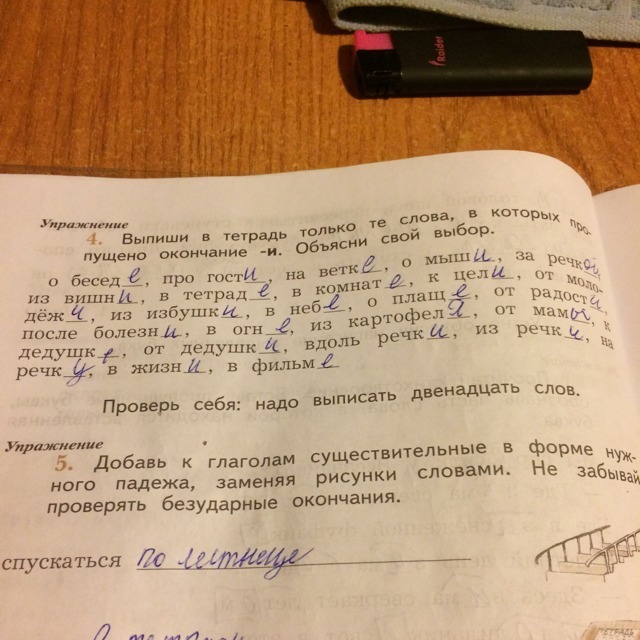 Raider
Упражнение
4. Выпиши в тетрадь только те слова, в которых про-
пущено окончание -и. Объясни свой выбор.
о бесед е, про гост и, на ветк е, о мыш и, за речк ой,
из вишн и, в тетрад е, в комнат е, к цел и, от моло-
дёж и, из избушк и, в неб е, о плащ е, от радост и,
после болезн и, в огн е, из картофел я, от мам ы, к
дедушк е, от дедушк и, вдоль речк и, из речк и, на
речк у, в жизн и, в фильм е
Проверь себя: надо выписать двенадцать слов.
Упражнение
5. Добавь к глаголам существительные в форме нуж-
ного падежа, заменяя рисунки словами. Не забывай
проверять безударные окончания.
спускаться по лестнице
ТЕТРАДЬ